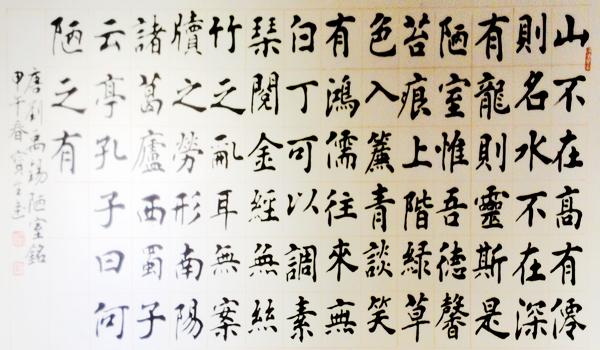 山不在高有僊
則名水不在深
有龍則靈斯是
陋室惟吾德馨
苔痕上階綠草
色入簾青談笑
有鴻儒往來無
白丁可以調素
琴閱金經無絲
竹之亂耳無案
牘之勞形南陽
諸葛廬西蜀子
云亭孔子曰何
陋之有
唐劉禹錫陋室銘
甲午春